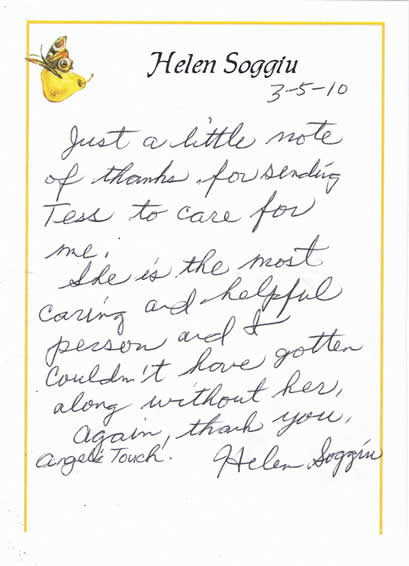 Helen Soggiu
3-5-10
Just a little note
of thanks for sending
Tess to care for
me.
She is the most
caring and helpful
person and I
couldn't have gotten
along without her,
Again, thank you,
Angels Touch.
Helen Soggiu